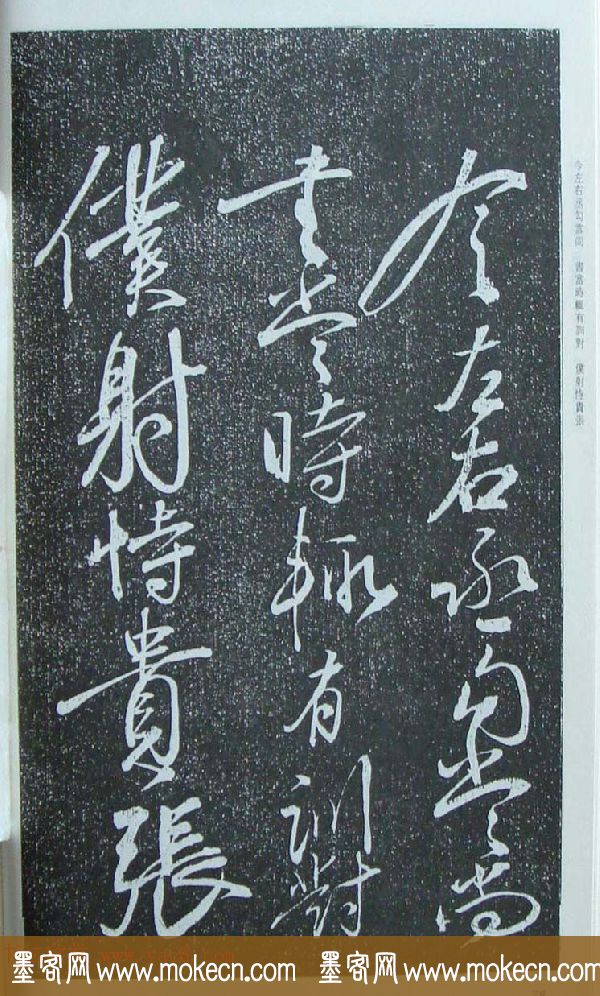 令左右丞勾當尚
書當時輒有訓對
僕射恃貴張
令左右丞勾當尚 書當時輒有訓對 僕射恃貴張
墨客网 www.mokecn.com 墨客网 www.mokecn.com